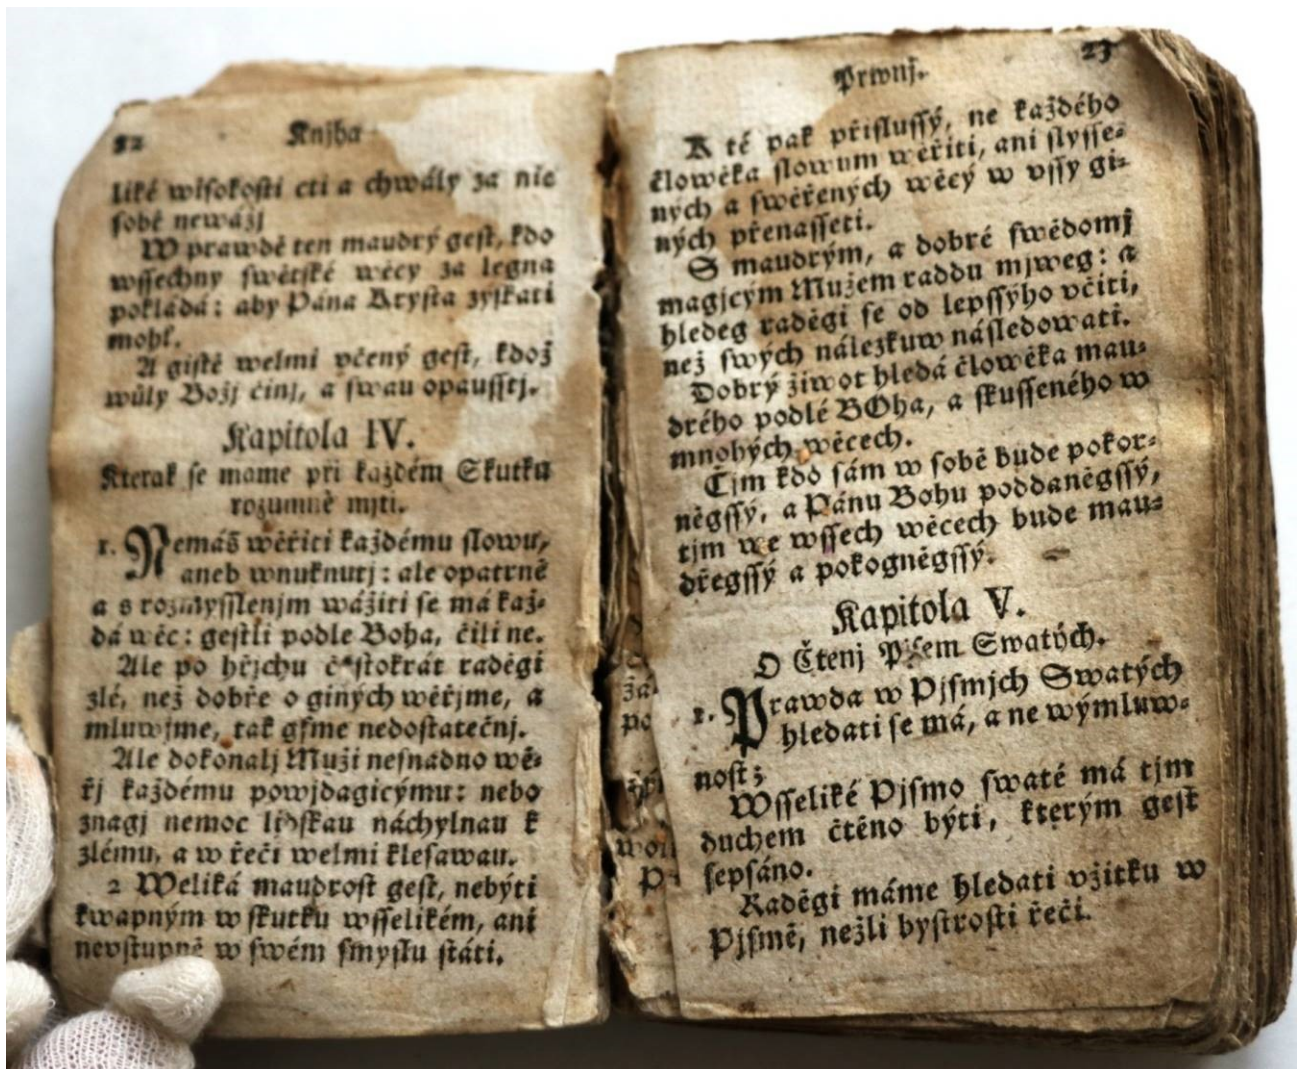 22 Knjha
liké wisokosti cti a chwály za nic
sobě newážj
W prawdě ten maudrý gest, kdo
wssechny swětské wěcy za legna
pokládá: aby Pána Krysta zyskati
mohl.
A gistě welmi včený gest, kdož
wůly Božj činj, a swau opausstj.
Kapitola IV.
Kterak se mame při každém Skutku
rozumně mjti.
1. Nemáš wěřiti každému slowu,
aneb wnuknutj: ale opatrně
a s rozmysslenjm wážiti se má kaž-
dá wěc: gestli podle Boha, čili ne.
Ale po hřjchu častokrát raděgi
zlé, než dobře o giných wěřjme, a
mluwjme, tak gsme nedostatečnj.
Ale dokonalj Muži nesnadno wě-
řj každému powjdagicýmu: nebo
znagj nemoc lidskau náchylnau k
zlému, a w řeči welmi klesawau.
2 Weliká maudrost gest, nebýti
kwapným w skutku wsselikém, ani
nevstupně w swém smyslu státi.
Prwnj. 23
K té pak přislussý, ne každého
člowěka slowum wěřiti, ani slysse-
ných a swěřených wěcý w vssy gi-
ných přenasseti.
S maudrým, a dobré swědomj
magjcým Mužem raddu mjweg: a
hledeg raděgi se od lepssýho včiti,
než swých nálezkuw následowati.
Dobrý žiwot hledá člowěka mau-
drého podlé BOha, a skusseného w
mnohých wěcech.
Čjm kdo sám w sobě bude pokor-
něgssý, a Pánu Bohu poddaněgssý,
tjm we wssech wěcech bude mau-
dřegssý a pokogněgssý.
Kapitola V.
O Čtenj Pjsem Swatých.
1. Prawda w Pjsmjch Swatých
hledati se má, a ne wýmluw-
nost;
Wsseliké Pjsmo swaté má tjm
duchem čtěno býti, kterým gest
sepsáno.
Raděgi máme hledati vžitku w
Pjsmě, nežli bystrosti řeči.